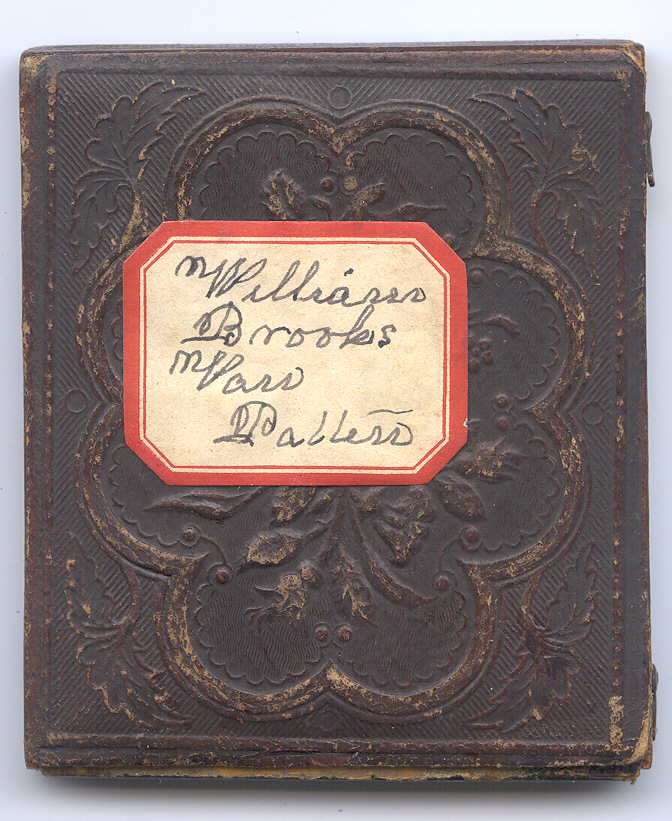 William
Brooks
Van
Patten